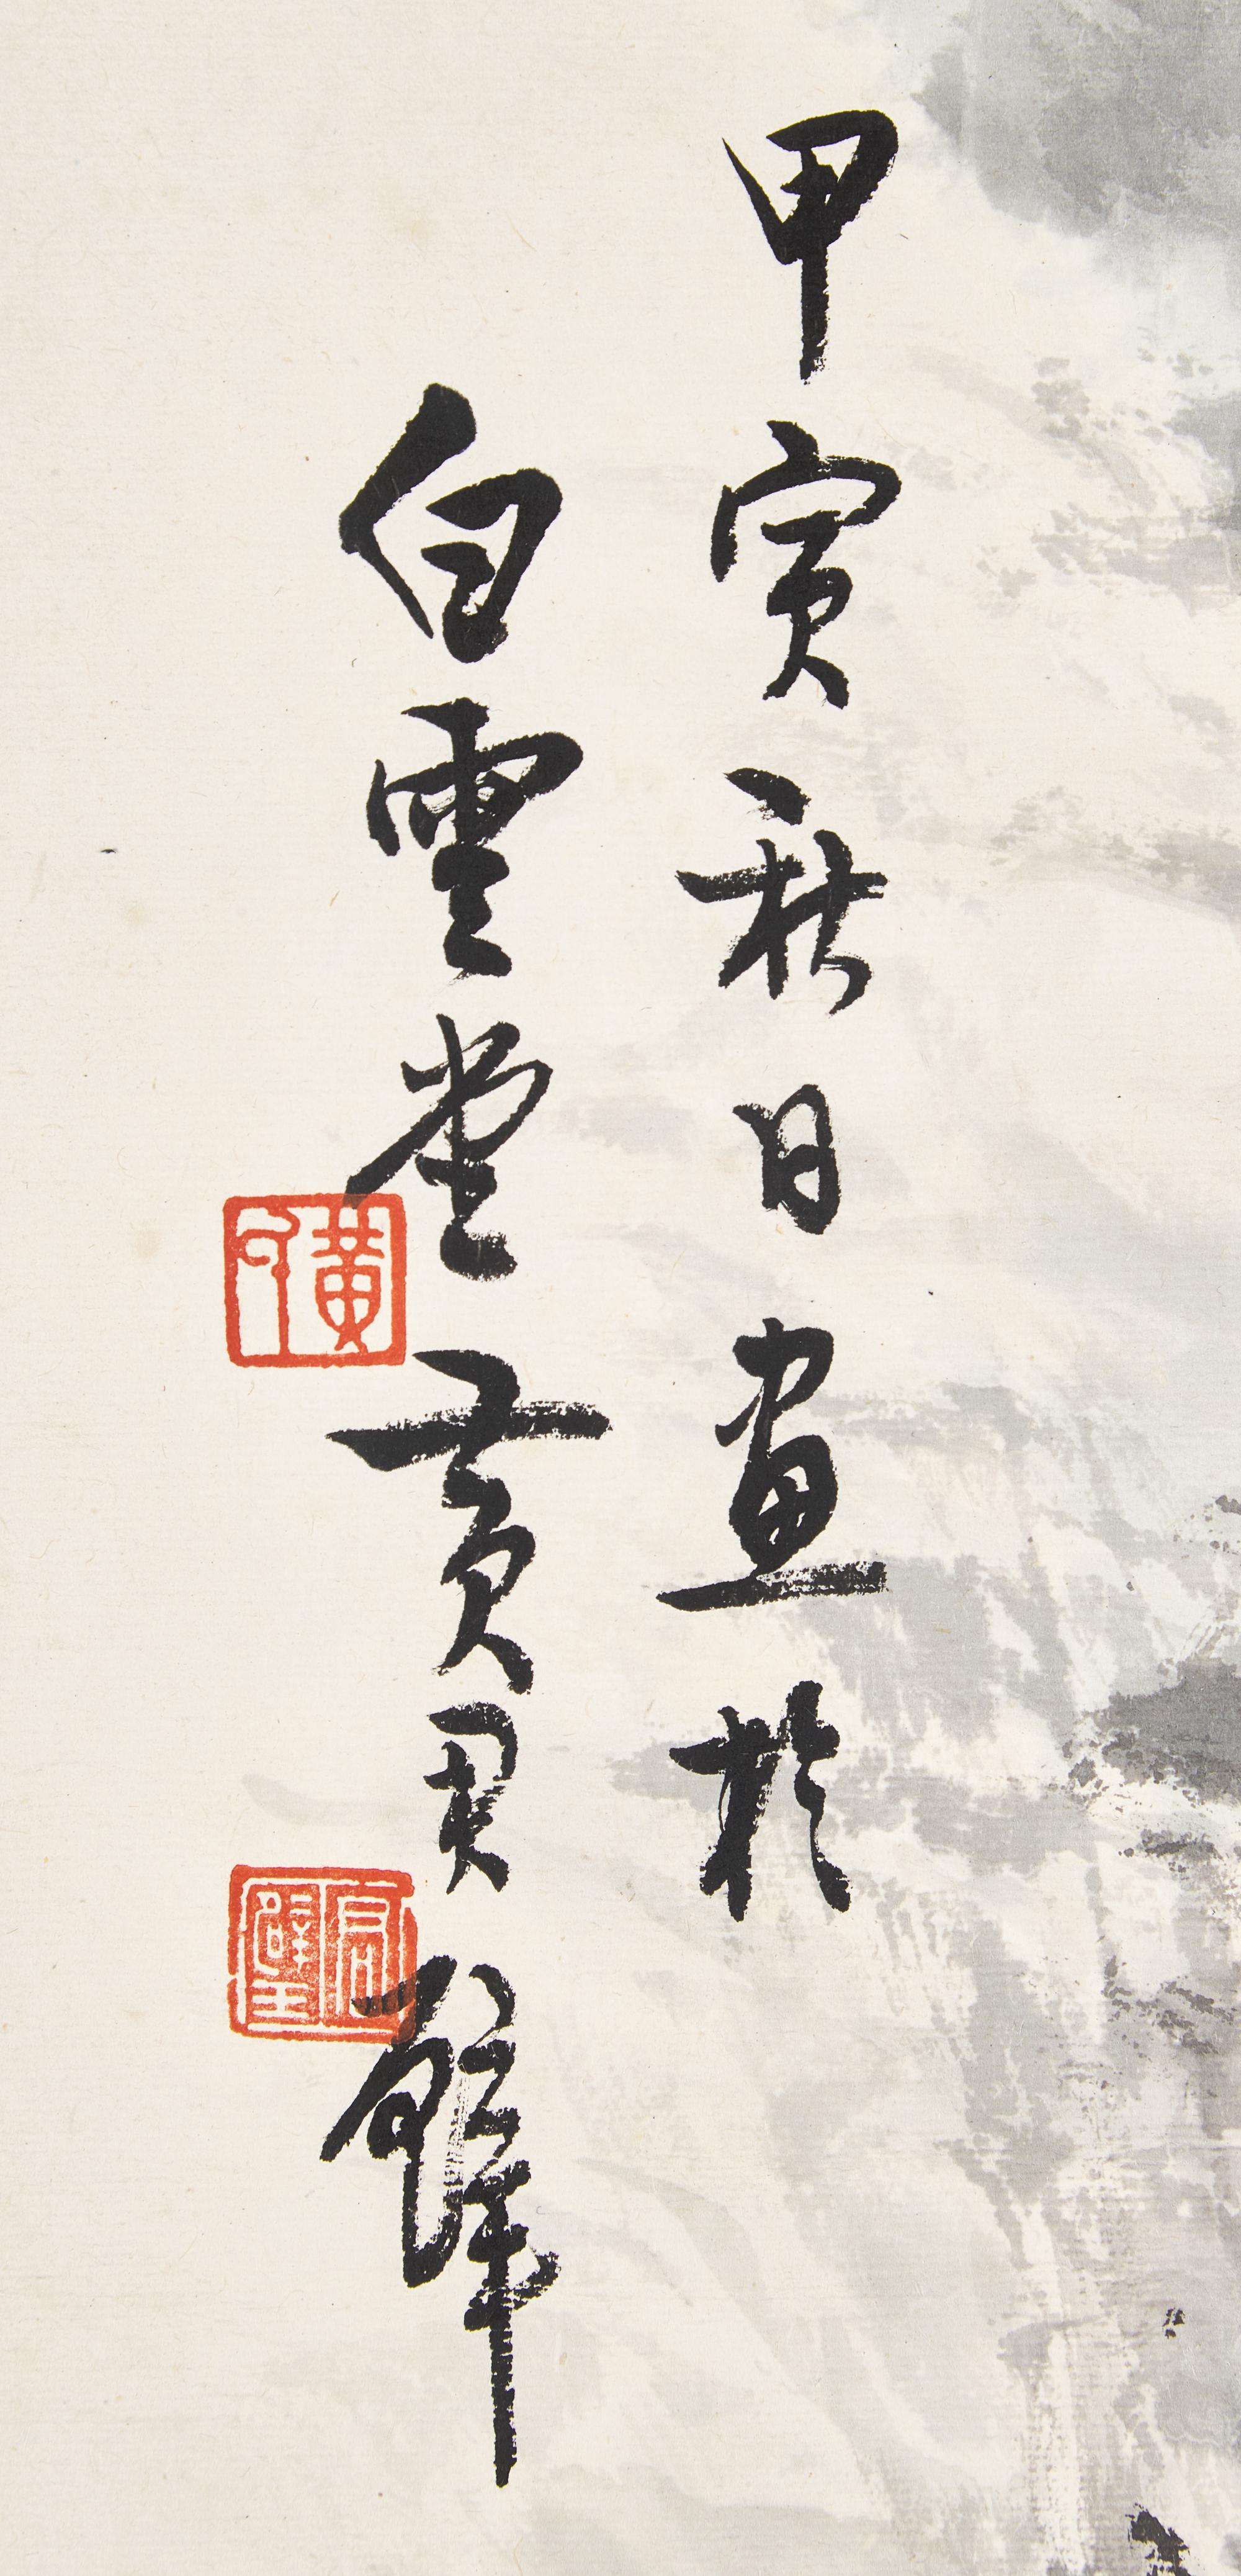 甲寅秋日畫於
白雲堂黃君璧
黃
君璧